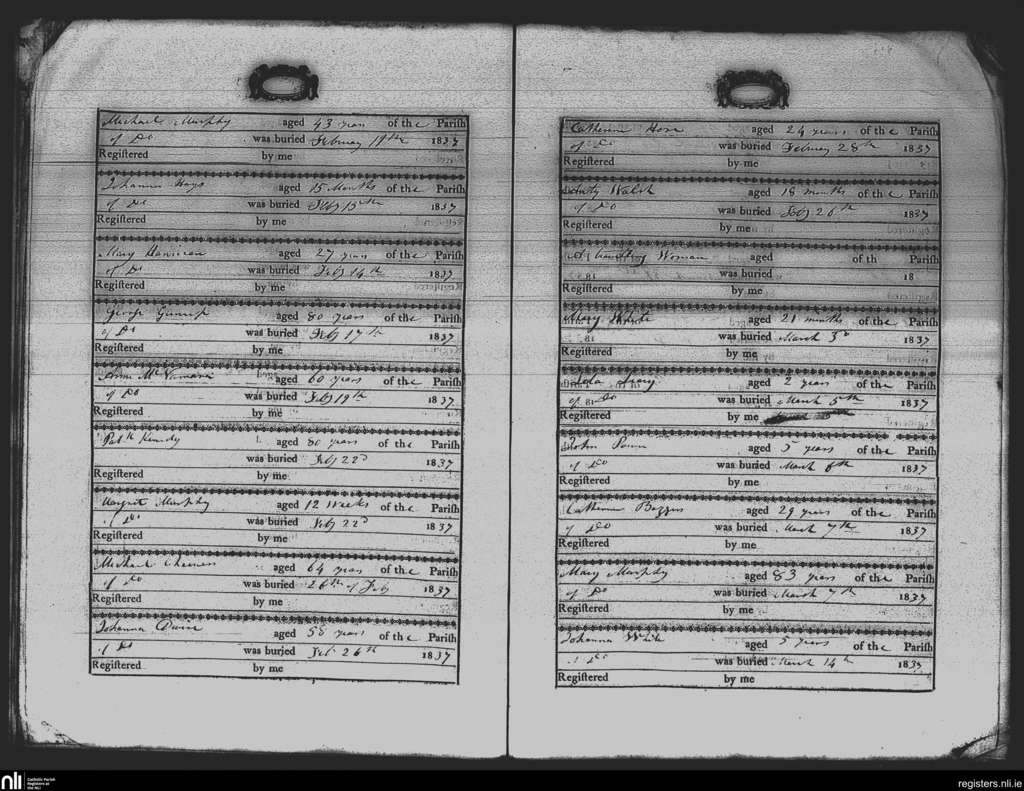 Michael Murphy aged 43 years of the Parish
of Do was buried February 19th 1837
Registered by me
Johanna Hays aged 15 Months of the Parish
of Do was buried Feby 15th 1837
Registered by me
Mary aged 27 years of the Parish
of Do was buried Feby 14th 1837
Registered by me
George aged 80 years of the Parish
of Do was buried Feby 17th 1837
Registered by me
Anne McNamara aged 60 years of the Parish
of Do was buried Feby 19th 1837
Registered by me
Patk Kennedy aged 80 years of the Parish
was buried Feby 22d 1837
Registered by me
Margret Murphy aged 12 Weeks of the Parish
of Do was buried Feby 22d 1837
Registered by me
Michael aged 64 years of the Parish
of Do was buried 26th of Feby 1837
Registered by me
Johanna Dwire aged 55 years of the Parish
of Do was buried Feb 26th 1837
Registered by me
Catherine Hore aged 24 years of the Parish
of Do was buried February 28th 1837
Registered by me
Walsh aged 18 months of the Parish
of Do was buried Feby 26th 1837
Registered by me
A Woman aged of th Parish
was buried 18
Registered by me
Mary White aged 21 months of the Parish
was buried March 3d 1837
Registered by me
aged 2 years of the Parish
of Do was buried March 5th 1837
Registered by me
John Power aged 5 years of the Parish
of Do was buried March 6th 1837
Registered by me
Catherine aged 29 years of the Parish
of Do was buried March 7th 1837
Registered by me
Mary Murphy aged 83 years of the Parish
of Do was buried March 7th 1837
Registered by me
Johanna White aged 5 years of the Parish
of Do was buried March 14th 1837
Registered by me
nli
Catholic Parish
Registers at
the NLI
registers.nli.ie